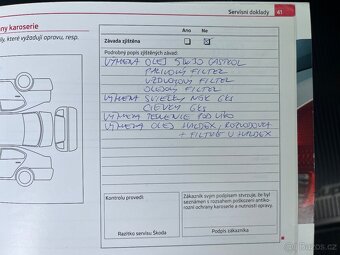 Servisní doklady 41
any karoserie
ily, které vyžadují opravu, resp.
Ano Ne
Závada zjištěna
Podrobný popis zjištěných závad:
VÝMENA OLEJ 5W30 CASTROL
PALIVOVÝ FILTER
VZDUCHOVÝ FILTER
OLEJOVÝ FILTER
VÝMENA SVIEČKY NGK 6KS
CIEVKY 6KS
VÝMENA TESNENIE POD VÍKO
VÝMENA OLEJ HALDEX, ROZVODOVKA
+ FILTER V HALDEX
Kontrolu provedl:
Razítko servisu Škoda
Zákazník svým podpisem stvrzuje, že byl
seznámen s rozsahem poškození antikoro-
rozní ochrany karoserie a nutností opravy.
Podpis zákazníka
bazoš.cz